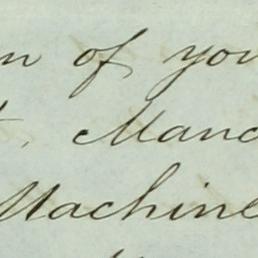 n of you
t, Manc
Machine